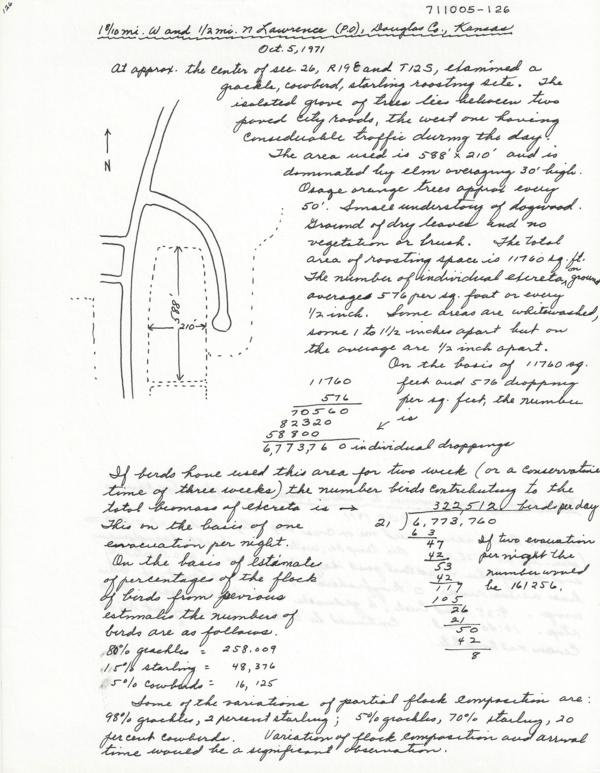 126
711005-126
1 8/10 mi. W and 1/2 mi. N Lawrence (P.O.), Douglas Co., Kansas
Oct. 5, 1971
At approx. the center of sec. 26, R19E and T12S, examined a
grackle, cowbird, starling roosting site. The
isolated grove of trees lies between two
paved city roads, the west one having
considerable traffic during the day.
The area used is 588' x 210' and is
dominated by elm averaging 30' high.
Osage orange trees approx every
50'. Small understory of dogwood.
Ground of dry leaves and no
vegetation or brush. The total
area of roosting space is 11760 sq. ft.
The number of individual excreta, on ground
averaged 576 per sq. foot or every
1/2 inch. Some areas are whitewashed,
some 1 to 1 1/2 inches apart but on
the average are 1/2 inch apart.
N
588'
210
On the basis of 11760 sq.
feet and 576 dropping
per sq. feet, the number
is
11760
576
70560
82320
58800
6,773,760 individual droppings
If birds have used this area for two week (or a conservative
time of three weeks) the number birds contributing to the
total biomass of excreta is →
This on the basis of one
evacuation per night.
322,512 birds per day
21 ) 6,773,760
6 3
47
42
53
42
117
105
26
21
50
42
8
If two evacuation
per night the
number would
be 161256.
On the basis of estimate
of percentages of the flock
of birds from pevious
estimates the numbers of
birds are as follows.
80% grackles = 258.009
15% starling = 48,376
5% cowbirds = 16,125
Some of the variations of partial flock composition are:
98% grackles, 2 percent starling; 5% grackles, 70% starling, 20
per cent cowbirds. Variation of flock composition and arrival
time would be a significant observation.